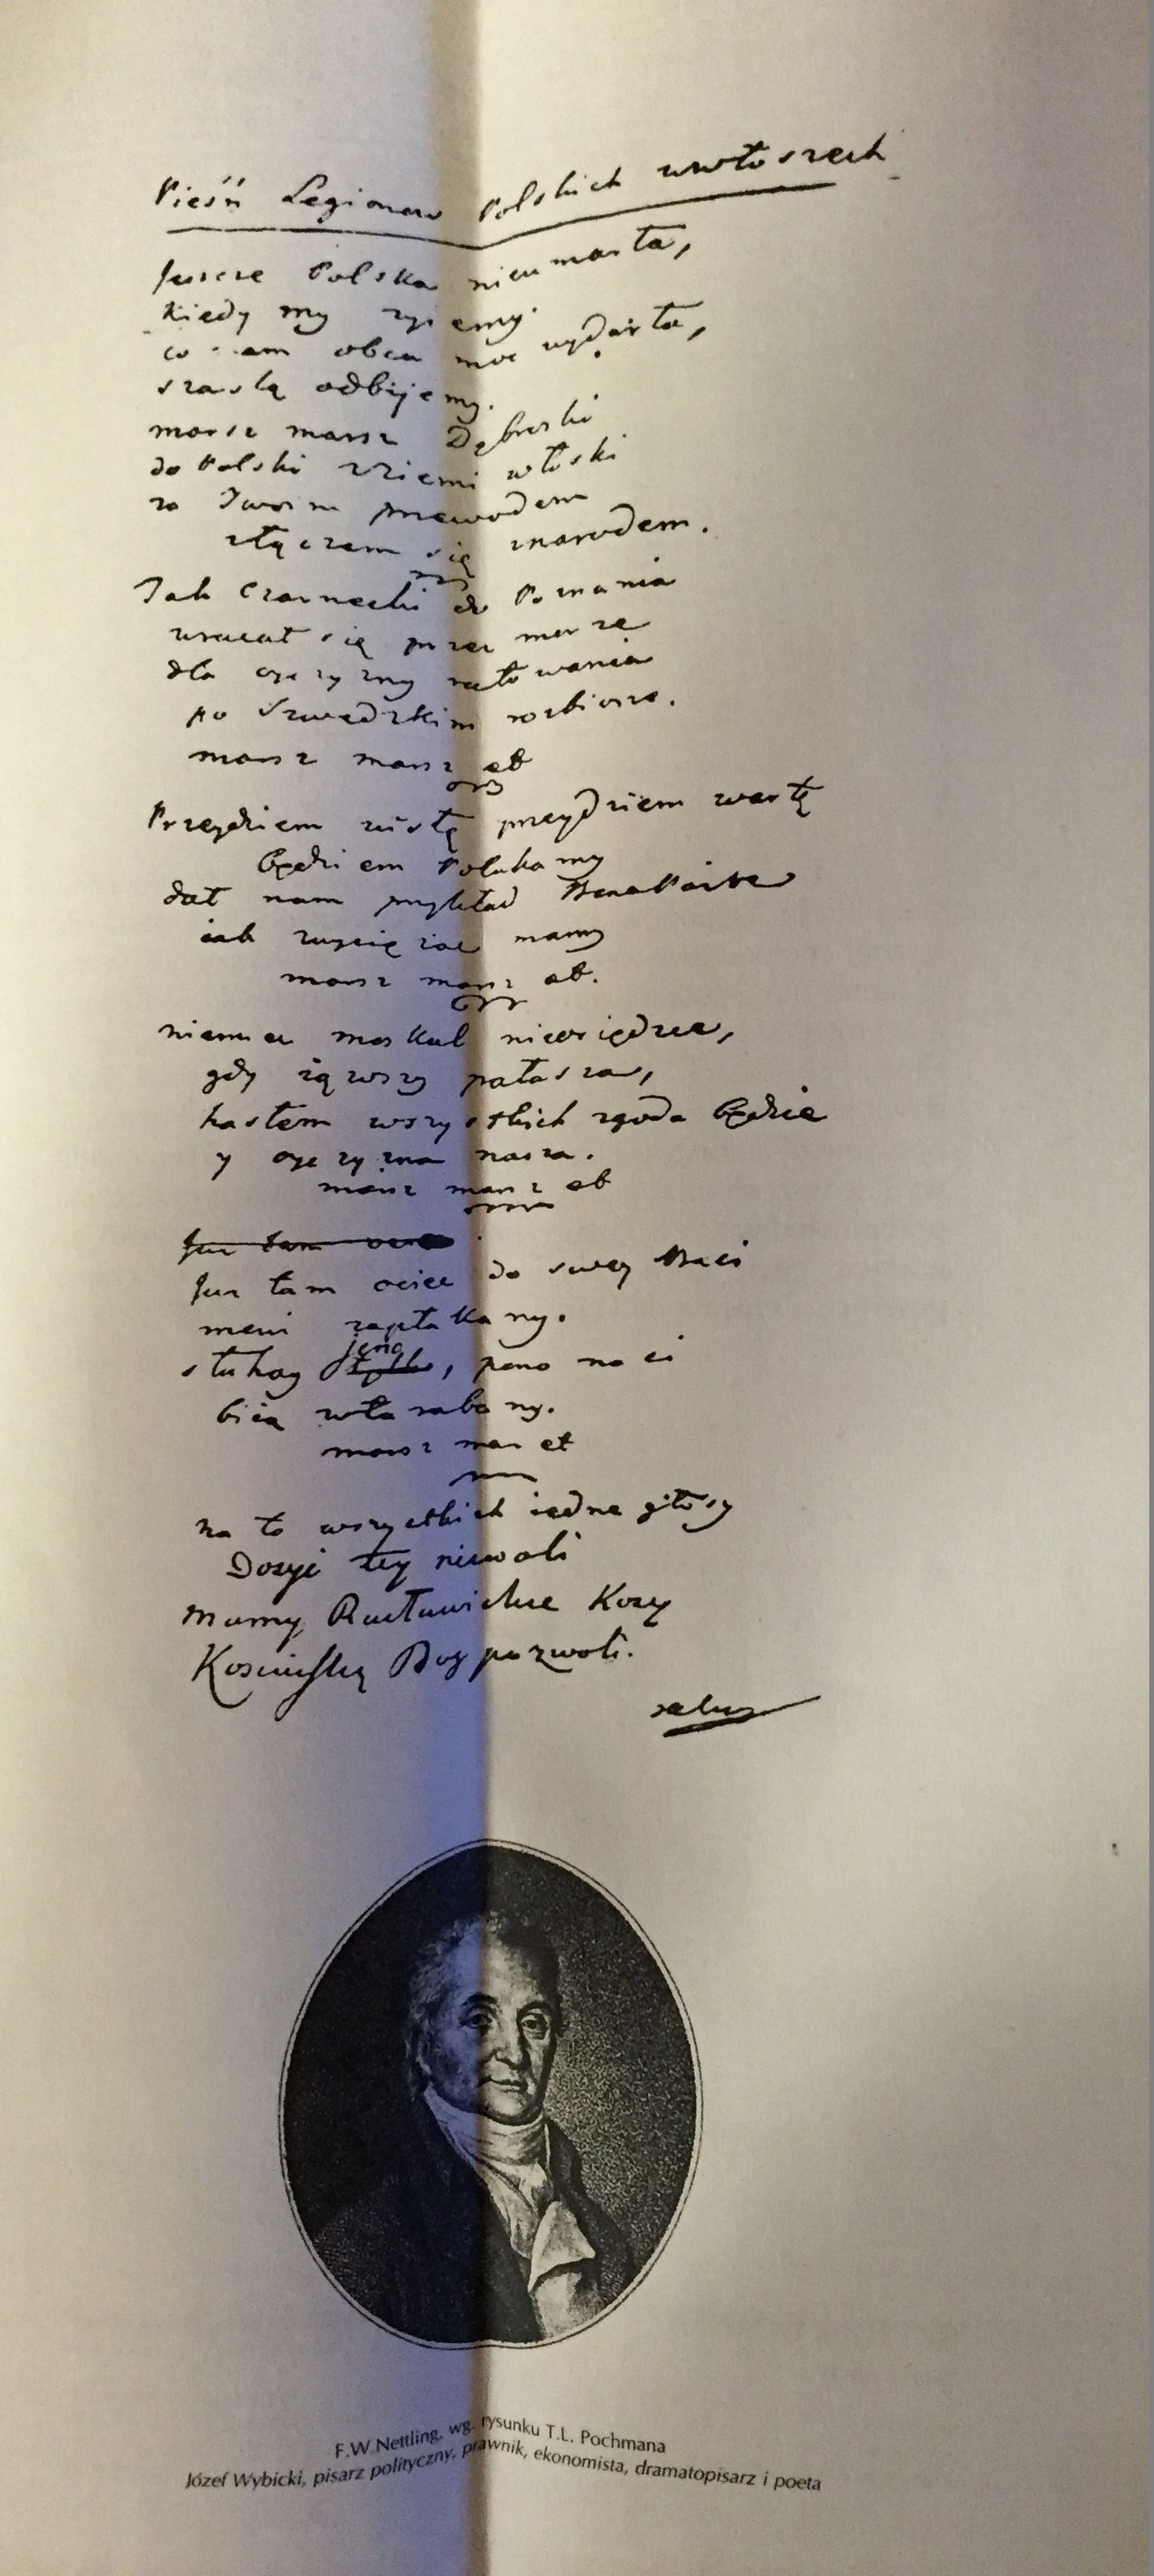 Pieśń Legionow Polskich wewłoszech
Jescze Polska nieumarła,
kiedy my żyiemy.
co nam obca moc wydarła,
szablą odbijemy.
marsz marsz Dąbroski
do Polski zziemi włoski
za Twoim przewodem
złączem się znarodem.
Jak Czarnecki do Poznania
wracał się przez morze
dla oyczyzny ratowania
po Szwedzkim rozbiorze.
marsz marsz et
Przeydziem wisłę przeydziem wartę
będziem Polakamy
dał nam przykład BonaParte
iak zwyciężac mamy
marsz marsz et.
niemiec moskal nieosiędzie,
gdy iąwszy pałasza,
hasłem wszystkich zgoda będzie
y oyczyzna nasza.
marsz marsz et
Już tam
Już tam ociec do swey Basi
mowi zapłakany.
słuhay jeno, pono nasi
biią wtarabany.
marsz mar et
na to wszystkich iedne głosy
Dosyć tey niewoli
Mamy Racławickie Kosy
Kosciuszkę Bog pozwoli.
F.W.Nettling, wg. rysunku T.L. Pochmana
Józef Wybicki, pisarz polityczny, prawnik, ekonomista, dramatopisarz i poeta